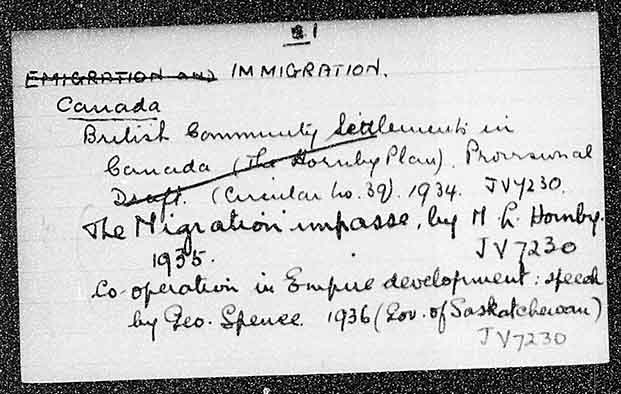 1
EMIGRATION and IMMIGRATION.
Canada
British Community Settlements in
Canada (The Hornby Plan). Provisional
Draft. (Circular No. 39). 1934. JV7230.
The Migration impasse, by M L. Hornby.
1935. JV7230
Co-operation in Empire development: speech
by Geo. Spence. 1936 (Gov. of Saskatchewan)
JV7230